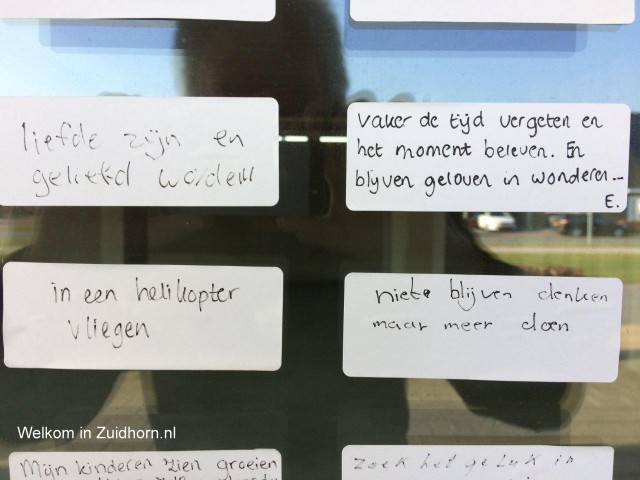 liefde zijn en
geliefd worden
vaker de tijd vergeten en
het moment beleven. En
blijven geloven in wonderen...
E.
in een helikopter
vliegen
niet blijven denken
maar meer doen
Welkom in Zuidhorn.nl
Mijn kinderen zien groeien
Zoek het geluk in